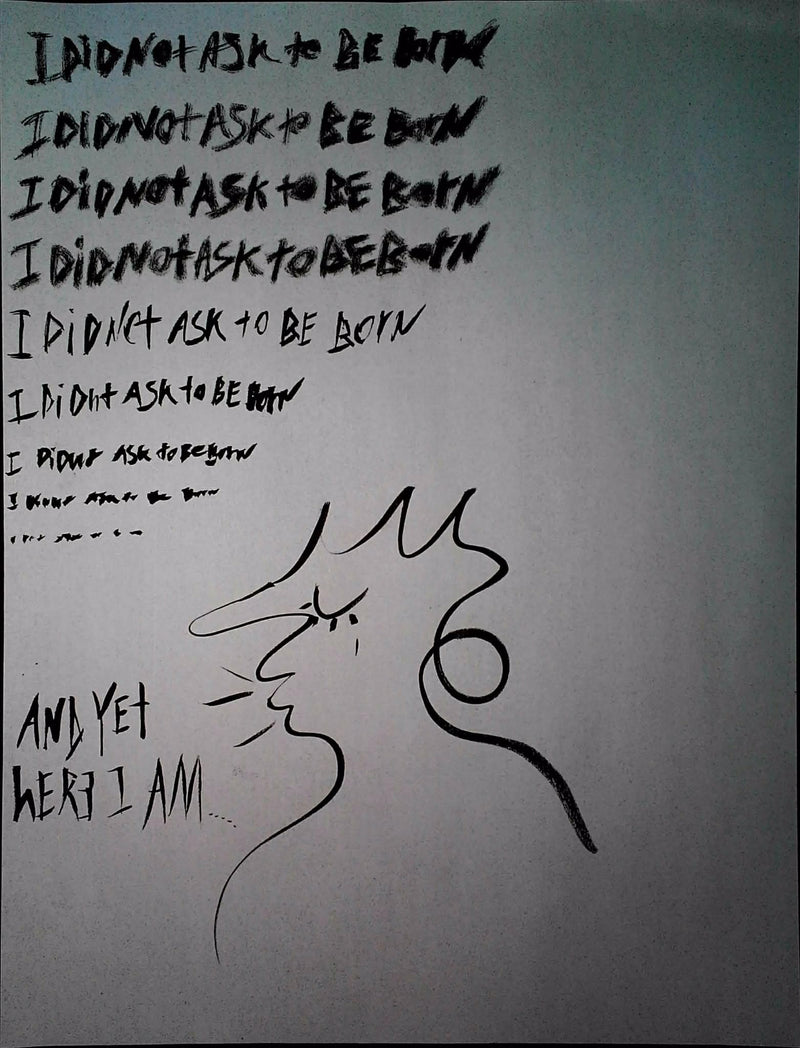 I DiD Not ASK to BE Born
I DiD Not ASK to BE BorN
I DiD Not ASK to BE BorN
I DiD Not ASK to BE BorN
I DiD Not ASK to BE BorN
I DiDnt ASK to BE BorN
I DiDnt ASK to BE BorN
I
AND YEt
hERE I AM.....